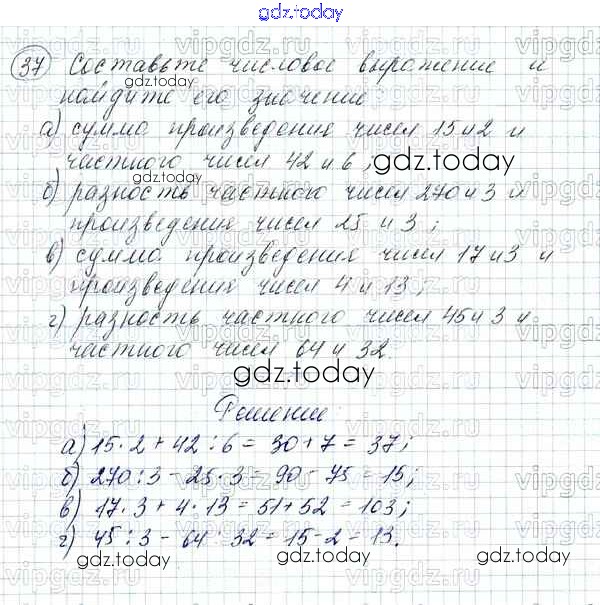 gdz.today
37 Составьте числовое выражение и
найдите его значение:
а) сумма произведения чисел 15 и 2 и
частного чисел 42 и 6;
б) разность частного чисел 270 и 3 и
произведения чисел 25 и 3;
в) сумма произведения чисел 17 и 3 и
произведения чисел 4 и 13;
г) разность частного чисел 45 и 3 и
частного чисел 64 и 32.
Решение:
а) 15·2+42:6=30+7=37;
б) 270:3-25·3=90-75=15;
в) 17·3+4·13=51+52=103;
г) 45:3-64:32=15-2=13.
gdz.today
gdz.today
gdz.today
gdz.today
gdz.today
gdz.today
gdz.today
vipgdz.ru